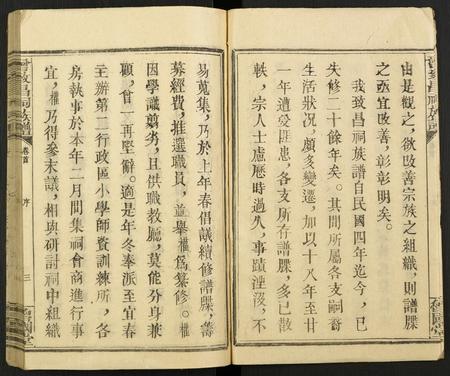 由是觀之，欲改善宗族之組織，則譜牒
之亟宜改善，彰彰明矣。
我致昌祠族譜自民國四年迄今，已
失修二十餘年矣。其間所屬各支嗣裔
生活狀況，頗多變遷，加以十八年至廿
一年遭受匪患，各支所存譜牒，多已散
軼，宗人士慮歷時過久，事蹟湮沒，不
易蒐集，乃於上年春倡議續修譜牒，籌
募經費，推選職員，並舉權爲纂修。權
因學識剪劣，且供職教廳，莫能分身兼
顧，曾一再堅辭。適是年冬奉派至宜春
主辦第二行政區小學師資訓練所，各
房執事於本年二月間集祠會商進行事
宜，權乃得參末議，相與研討祠中組織
致昌祠族譜
卷首
序
三